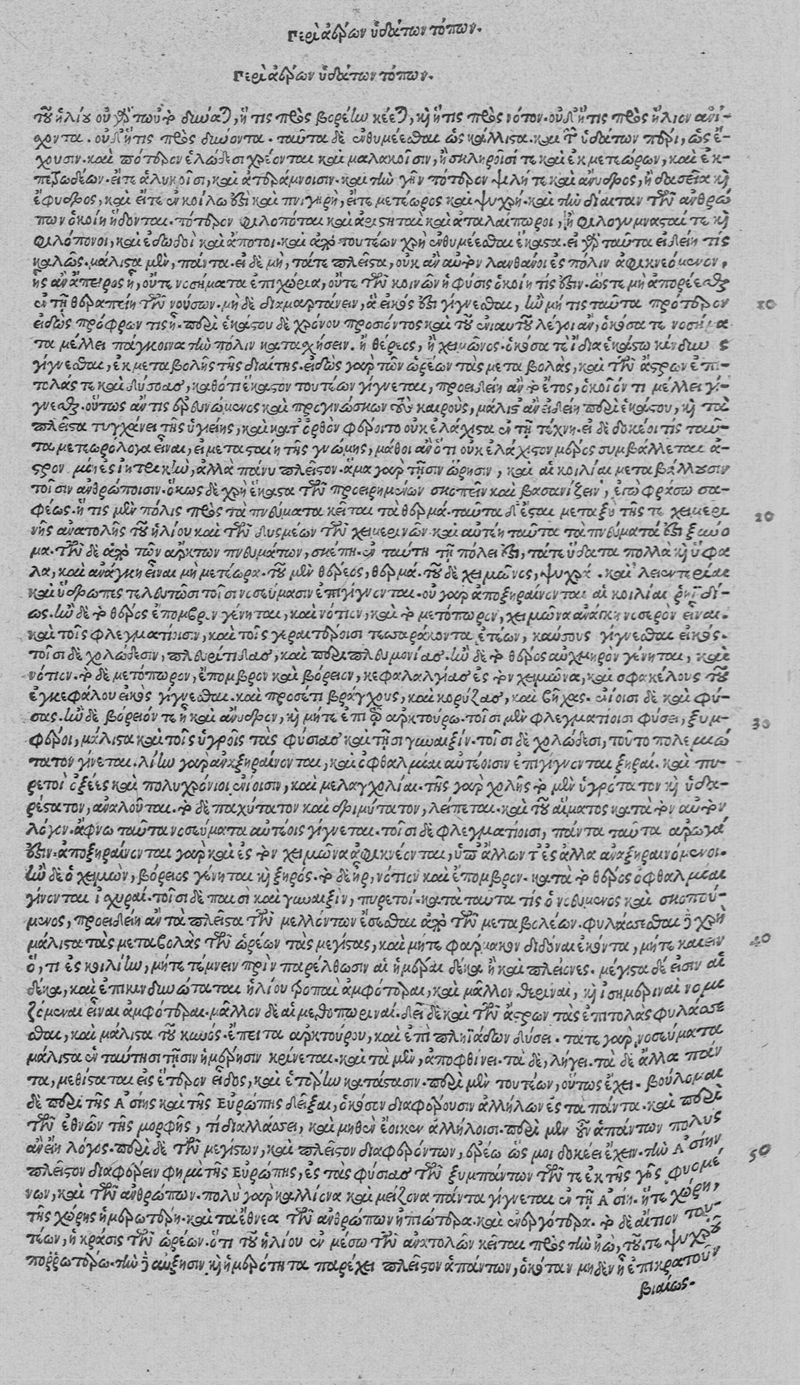 Περὶ ἀέρων ὑδάτων τόπων.
Περὶ ἀέρων ὑδάτων τόπων.
τοῦ ἡλίου· οὐ γὰρ τωὐτὸ δύναται, ἥτις πρὸς βορέην κέεται, καὶ ἥτις πρὸς νότον. οὐδ' ἥτις πρὸς ἥλιον ἀνί-
χοντα. οὐδ' ἥτις πρὸς δύνοντα. ταῦτα δὲ ἐνθυμέεσθαι ὡς κάλλιστα. καὶ τῶν ὑδάτων πέρι, ὡς ἔ-
χουσιν. καὶ πότερον ἑλώδεσι χρέονται καὶ μαλακοῖσιν, ἢ σκληροῖσί τε καὶ ἐκ μετεώρων, καὶ ἐκ
πετρωδέων. εἴτε ἁλυκοῖσι, καὶ ἀτεράμνοισιν. καὶ τὴν γῆν πότερον ψιλή τε καὶ ἄνυδρος, ἢ δασεῖα καὶ
ἔφυδρος, καὶ εἴτε ἐν κοίλῳ ἐστὶ καὶ πνιγερὴ, εἴτε μετέωρος καὶ ψυχρή. καὶ τὴν δίαιταν τῶν ἀνθρώ
πων ὁκοίῃ ἥδονται. πότερον φιλοπόται καὶ ἀριστηταὶ καὶ ἀταλαίπωροι, ἢ φιλογυμνασταί τε καὶ
φιλόπονοι, καὶ ἐδωδοὶ καὶ ἄποτοι. καὶ ἀπὸ τουτέων χρὴ ἐνθυμέεσθαι ἕκαστα. εἰ γὰρ ταῦτα εἰδείη τις
καλῶς. μάλιστα μὲν, πάντα. εἰ δὲ μὴ, τά τε πλεῖστα, οὐκ ἂν αὐτὸν λανθάνοι ἐς πόλιν ἀφικνεόμενον,
ἧς ἂν ἄπειρος ᾖ, οὔτε νοσήματα ἐπιχώρια, οὔτε τῶν κοινῶν ἡ φύσις ὁκοίη τις ἐστίν. ὥστε μὴ ἀπορέεσθαι
ἐν τῇ θεραπείῃ τῶν νούσων. μηδὲ διαμαρτάνειν, ἃ εἰκός ἐστι γίγνεσθαι, ἢν μή τις ταῦτα πρότερον
εἰδὼς πρόφρων τις ᾖ. περὶ ἑκάστου δὲ χρόνου προσιόντος καὶ τοῦ ἐνιαυτοῦ λέγοι ἂν, ὁκόσα τε νοσήμα
τα μέλλει πάγκοινα τὴν πόλιν κατασχήσειν. ἢ θέρεος, ἢ χειμῶνος. ὁκόσα τε ἴδια ἑκάστῳ κίνδυνος
γίγνεσθαι, ἐκ μεταβολῆς τῆς διαίτης. εἰδὼς γὰρ τῶν ὡρέων τὰς μεταβολὰς, καὶ τῶν ἄστρων ἐπι-
τολάς τε καὶ δύσιας, καθότι ἕκαστον τουτέων γίγνεται, προειδείη ἂν τὸ ἔτος, ὁκοῖόν τι μέλλει γί-
γνεσθαι. οὕτως ἄν τις ἐρευνώμενος καὶ προγινώσκων τοὺς καιροὺς, μάλιστ' ἂν εἰδείη περὶ ἑκάστου, καὶ τὰ
πλεῖστα τυγχάνει τῆς ὑγιείης, καὶ κατ' ὀρθὸν φέροιτο οὐκ ἐλάχιστα ἐν τῇ τέχνῃ. εἰ δὲ δοκέοι τις ταῦ-
τα μετεωρολόγα εἶναι, εἰ μετασταίη τῆς γνώμης, μάθοι ἂν ὅτι οὐκ ἐλάχιστον μέρος συμβάλλεται ἀ-
στρονομίη ἐς ἰητρικὴν, ἀλλὰ πάνυ πλεῖστον. ἅμα γὰρ τῇσιν ὥρῃσιν, καὶ αἱ κοιλίαι μεταβάλλουσιν
τοῖσιν ἀνθρώποισιν. ὅκως δὲ χρὴ ἕκαστα τῶν προειρημένων σκοπεῖν καὶ βασανίζειν, ἐγὼ φράσω σα-
φέως. ἥ τις μὲν πόλις πρὸς τὰ πνεύματα κεῖται τὰ θερμά. ταῦτα δέ ἐσται μεταξὺ τῆς τε χειμερι
νῆς ἀνατολῆς τοῦ ἡλίου καὶ τῶν δυσμέων τῶν χειμερινῶν καὶ αὐτέη ταῦτα τὰ πνεύματά ἐστι ξύννο
μα. τῶν δὲ ἀπὸ τῶν ἄρκτων πνευμάτων, σκέπη. ἐν ταύτῃ τῇ πόλει ἐστὶ, τά τε ὕδατα πολλὰ καὶ ὕφα
λα, καὶ ἀνάγκη εἶναι μὴ μετέωρα. τοῦ μὲν θέρεος, θερμά. τοῦ δὲ χειμῶνος, ψυχρά.
ως. ἢν δὲ τὸ θέρος ἔπομβρον γένηται, καὶ νότιον, καὶ τὸ μετόπωρον, χειμῶνα ἀνάγκη νοσερὸν εἶναι.
καὶ τοῖς φλεγματίῃσιν, καὶ τοῖς γεραιτέροισι τεσσαράκοντα ἐτέων, καύσους γίγνεσθαι εἰκός.
τοῖσι δὲ χολώδεσιν, πλευρίτιδας, καὶ περιπλευμονίας. ἢν δὲ τὸ θέρος αὐχμηρὸν γένηται, καὶ
νότιον. τὸ δὲ μετόπωρον, ἔπομβρον καὶ βόρειον, κεφαλαλγίας ἐς τὸν χειμῶνα, καὶ σφακέλους τοῦ
ἐγκεφάλου εἰκὸς γίγνεσθαι. καὶ προσέτι βράγχους, καὶ κορύζας, καὶ βῆχας. ἐνίοισι δὲ καὶ φύ-
σιας. ἢν δὲ βόρειόν τε ᾖ καὶ ἄνυδρον, καὶ μήτε ἐπὶ τῷ ἀρκτούρῳ. τοῖσι μὲν φλεγματίοισι φύσει, ξυμ-
φέροι, μάλιστα καὶ τοῖς ὑγροῖς τὰς φύσιας καὶ τῇσι γυναιξίν. τοῖσι δὲ χολώδεσι, τοῦτο πολεμιώ
τατον γίνεται. λίην γὰρ ἀναξηραίνονται, καὶ ὀφθαλμίαι αὐτέοισιν ἐπιγίγνονται ξηραί. καὶ πυ-
ρετοὶ ὀξέες καὶ πολυχρόνιοι ἐνίοισιν, καὶ μελαγχολίαι. τῆς γὰρ χολῆς τὸ μὲν ὑγρότατον καὶ ὑδα-
ρέστατον, ἀναλοῦται. τὸ δὲ παχύτατον καὶ δριμύτατον, λείπεται. καὶ τοῦ αἵματος κατὰ τὸν αὐτὸν
λόγον. ἀφ' ὧν ταῦτα νοσεύματα αὐτέοις γίγνεται. τοῖσι δὲ φλεγματίοισι, πάντα ταῦτα ἀρωγά
ἐστιν. ἀποξηραίνονται γὰρ καὶ ἐς τὸν χειμῶνα ἀφικνέονται, ὑπ' ἄλλων τ' ἐς ἄλλα ἀναξηραινόμενοι.
ἢν δὲ ὁ χειμὼν, βόρειος γένηται καὶ ξηρός. τὸ δὲ ἦρ, νότιον καὶ ἔπομβρον. κατὰ τὸ θέρος ὀφθαλμίαι
γίνονται ἰσχυραί. τοῖσι δὲ παισὶ καὶ γυναιξὶν, πυρετοί. κατὰ ταῦτά τις ἐννοεύμενος καὶ σκοπού-
μενος, προειδείη ἂν τὰ πλεῖστα τῶν μελλόντων ἔσεσθαι ἀπὸ τῶν μεταβολέων. φυλάσσεσθαι δὲ χρὴ
μάλιστα τὰς μεταβολὰς τῶν ὡρέων τὰς μεγίστας, καὶ μήτε φάρμακον διδόναι ἑκόντα, μήτε καίειν
ὅ, τι ἐς κοιλίην, μήτε τέμνειν πρὶν παρέλθωσιν αἱ ἡμέραι δέκα. ἢ καὶ πλείονες. μέγισται δέ εἰσιν αἱ
δέκα, καὶ ἐπικινδυνώταται ἡλίου τροπαὶ ἀμφότεραι, καὶ μᾶλλον θεριναὶ, καὶ ἰσημεριναὶ νομι
ζόμεναι εἶναι ἀμφότεραι. μᾶλλον δὲ αἱ μεθοπωριναί. δεῖ δὲ καὶ τῶν ἄστρων τὰς ἐπιτολὰς φυλάσσε
σθαι, καὶ μάλιστα τοῦ κυνός. ἔπειτα ἀρκτούρου, καὶ ἐπὶ πληϊάδων δύσει. τά τε γὰρ νοσεύματα
μάλιστα ἐν ταύτῃσι τῇσιν ἡμέρῃσιν κρίνεται. καὶ τὰ μὲν, ἀποφθίνει. τὰ δὲ, λήγει. τὰ δὲ ἄλλα πάν
τα, μεθίσταται εἰς ἕτερον εἶδος, καὶ ἑτέρην κατάστασιν. περὶ μὲν τουτέων, οὕτως ἔχει. βούλομαι
δὲ περὶ τῆς Ἀσίης καὶ τῆς Εὐρώπης δεῖξαι, ὁκόσον διαφέρουσιν ἀλλήλων ἐς τὰ πάντα. καὶ περὶ
τῶν ἐθνῶν τῆς μορφῆς, τί διαλλάσσει, καὶ μηδὲν ἔοικεν ἀλλήλοισι. περὶ μὲν οὖν ἁπάντων πολὺς
ἂν εἴη λόγος. περὶ δὲ τῶν μεγίστων, καὶ πλεῖστον διαφερόντων, ἐρέω ὥς μοι δοκέει ἔχειν. τὴν Ἀσίην
πλεῖστον διαφέρειν φημὶ τῆς Εὐρώπης, ἐς τὰς φύσιας τῶν ξυμπάντων τῶν τε ἐκ τῆς γῆς φυομέ
νων, καὶ τῶν ἀνθρώπων. πολὺ γὰρ καλλίονα καὶ μείζονα πάντα γίγνεται ἐν τῇ Ἀσίῃ. ἥ τε χώρη,
τῆς χώρης ἡμερωτέρη. καὶ τὰ ἔθνεα τῶν ἀνθρώπων ἠπιώτερα. καὶ εὐοργότερα. τὸ δὲ αἴτιον του-
τέων, ἡ κρᾶσις τῶν ὡρέων. ὅτι τοῦ ἡλίου ἐν μέσῳ τῶν ἀνατολῶν κεῖται πρὸς τὴν ἠῶ, τοῦ τε ψυχροῦ
πορρωτέρω. τὴν δὲ αὔξησιν καὶ ἡμερότητα παρέχει πλεῖστον ἁπάντων, ὁκόταν μηδὲν ᾖ ἐπικρατοῦν
βιαίως.
10
20
30
40
50